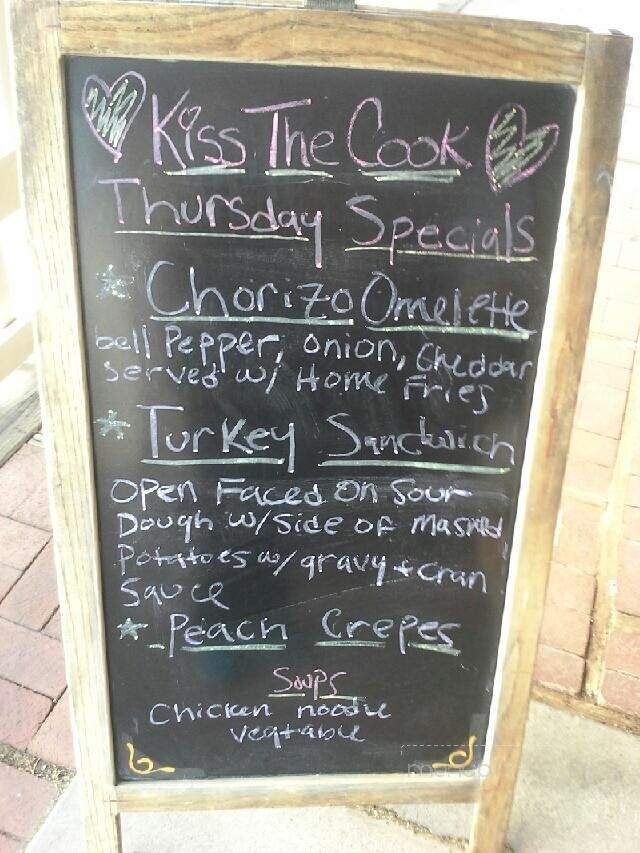 Kiss The Cook
Thursday Specials
* Chorizo Omelette
bell Pepper, onion, Cheddar
served w/ Home Fries
* Turkey Sandwich
Open Faced On Sour
Dough w/ Side of Mashed
Potatoes w/ gravy + cran
Sauce
* Peach Crepes
Soups
Chicken noodle
Vegtable